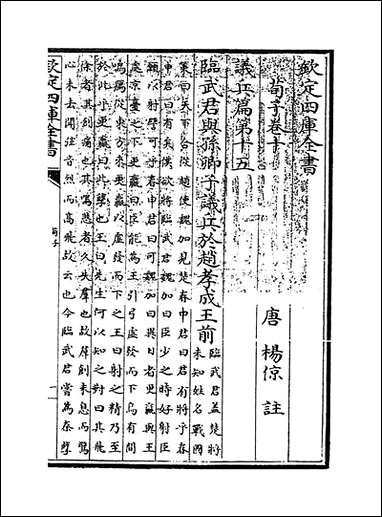 欽定四庫全書
荀子卷十
唐 楊倞 註
議兵篇第十五
臨武君與孫卿子議兵於趙孝成王前
臨武君葢楚將
未知姓名戰國
策曰天下合從趙使魏加見楚春申君曰君有將乎春
申君曰有矣僕欲將臨武君魏加曰臣少之時好射臣
願以射譬可乎春申君曰可魏加曰異日者更羸與王
處京臺之下更羸曰臣能為王引弓虛發而下鳥有間
鳴鴈從東方來更羸以虛發而下之王曰射之精乃至
於此乎更羸曰此孽也王曰先生何以知之對曰其飛
徐者其創痛也其鳴悲者久失羣也故創未息而驚
心未去聞弦音烈而高飛故云也今臨武君嘗為秦孽
欽定四庫全書
荀子
一